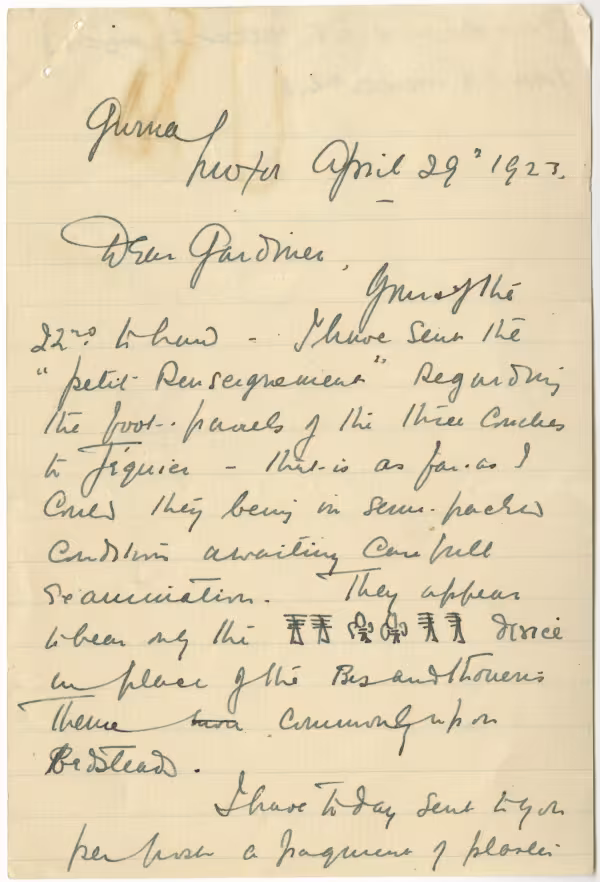 Gurna
Luxor April 29" 1923.
Dear Gardiner,
Yours of the
22nd to hand - I have sent the
"petit Renseignement" Regarding
the foot-panels of the three Couches
to Jéquier - that is as far as I
Could they being in semi-packed
Condition awaiting Carefull
Examination. They appear
to bear only the 𓊽𓊽 𓎬𓎬 𓊽𓊽 device
in place of the Bes and Thoueris
Theme commonly upon
Bedsteads.
I have to day sent to you
per post a fragment of plaster